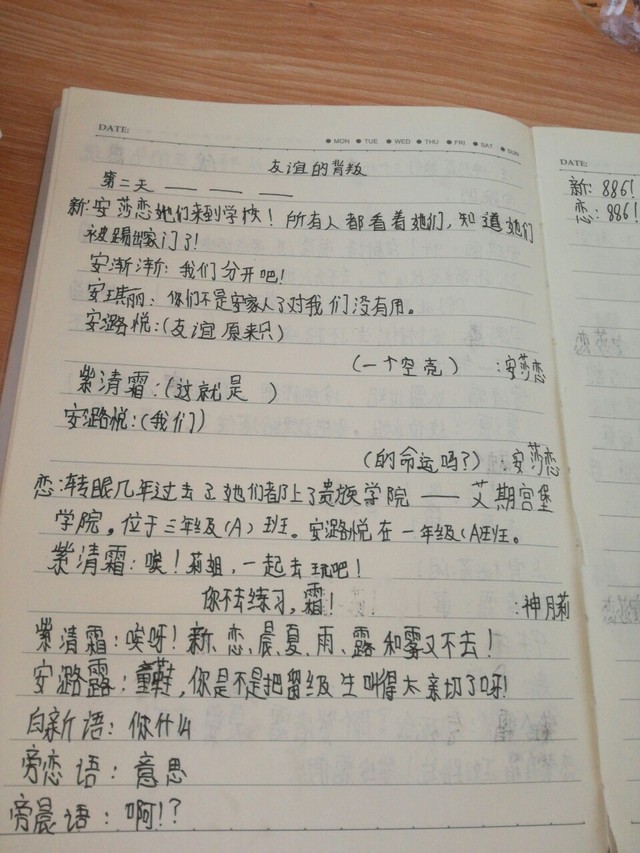 DATE:
● MON ● TUE ● WED ● THU ● FRI ● SAT ● SUN
友谊的背叛
第二天 — — —
新:安莎恋她们来到学校！所有人都看着她们,知道她们
被踢出家门了!
安渐渐:我们分开吧!
安琪丽:你们不是安家人了对我们没有用。
安潞悦:(友谊原来只)
(一个空壳) :安莎恋
紫清霜:(这就是 )
安潞悦:(我们)
(的命运吗?) :安莎恋
恋:转眼几年过去了她们都上了贵族学院 —— 艾期宫堡
学院,位于三年级(A)班。安潞悦在一年级(A)班。
紫清霜:唉!莉姐,一起去玩吧!
你不去练习,霜! :神月莉
紫清霜:唉呀!新、恋、晨、夏、雨、露和雾又不去!
安潞露:童鞋,你是不是把留级生叫得太亲切了呀!
白新语:你什么
旁恋语:意思
旁晨语:啊!?
DATE:
新: 886!
恋: 886!